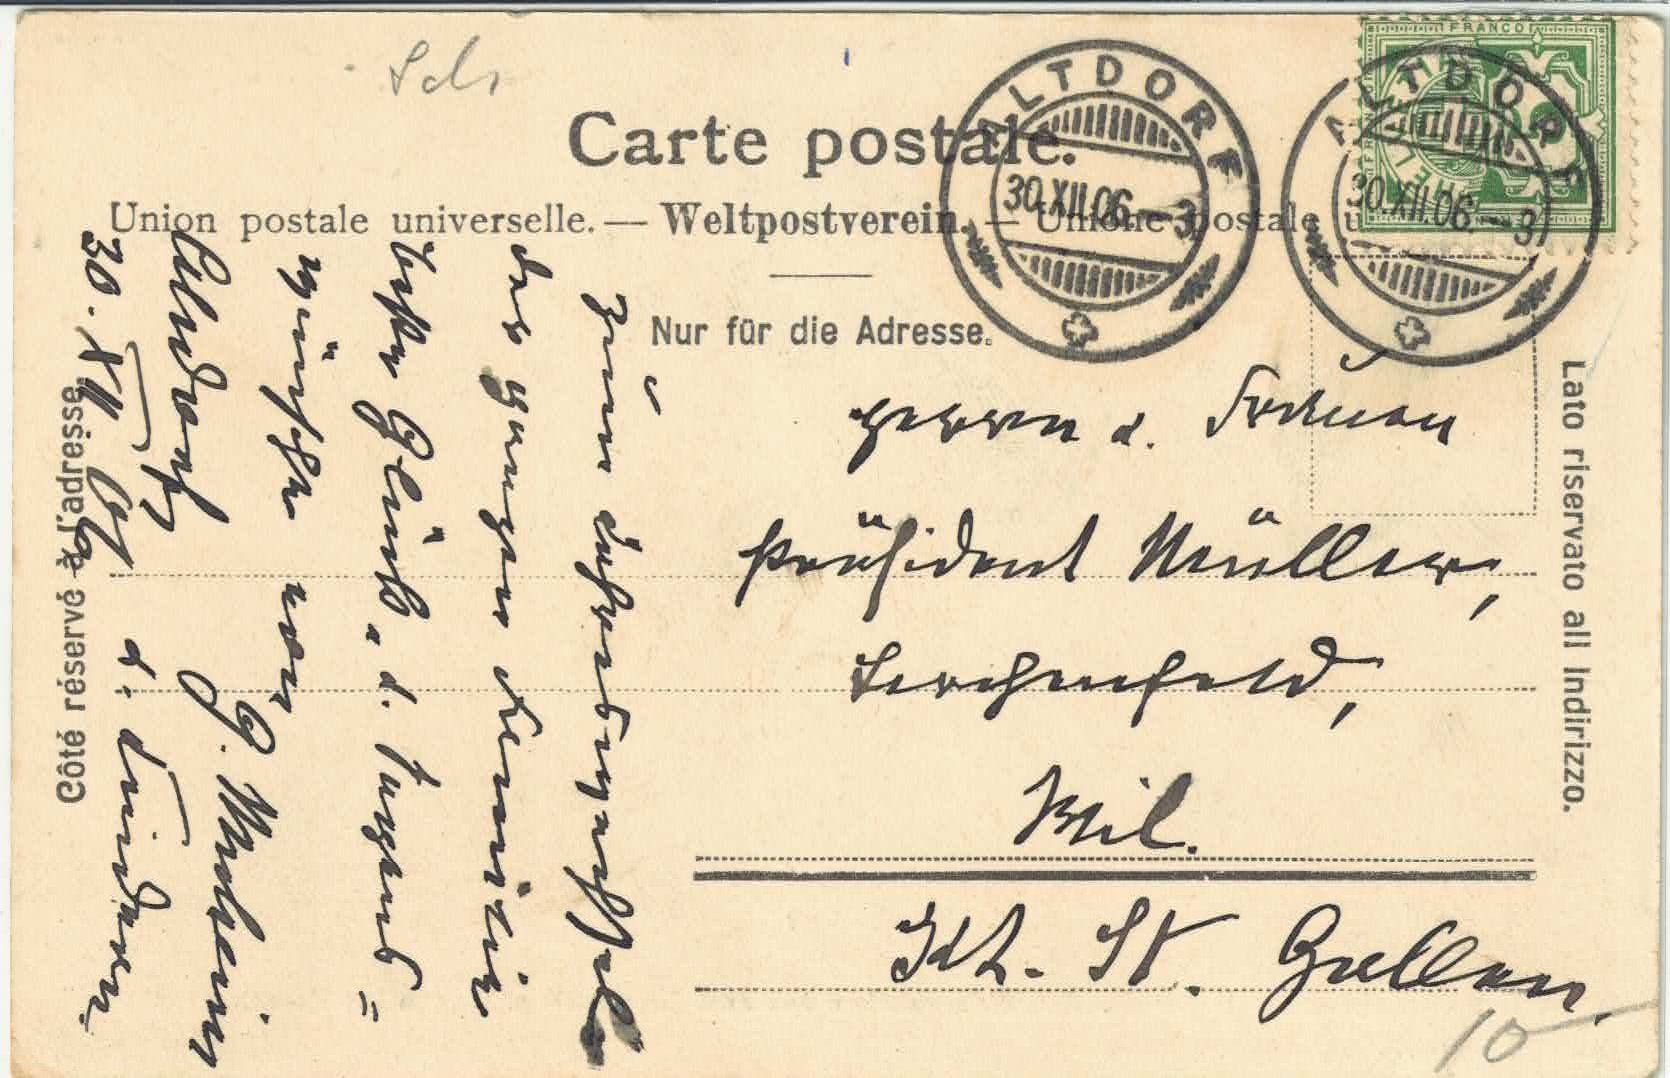 Sch
Carte postale.
Union postale universelle. — Weltpostverein. — Unione postale u
Nur für die Adresse.
Côté réservé à l'adresse.
Lato riservato all Indirizzo.
FRANCO
ALTDORF
30.XII.06.–3
ALTDORF
30.XII.06.–3
Herrn u. Frauen
Präsident Müller,
Lerchenfeld,
Wil.
Kt. St. Gallen.
10
Zum Jahreswechsel
der ganzen Familie
beste Glück- u. Segens-
wünsche von
G.
Altdorf
30. XII 06